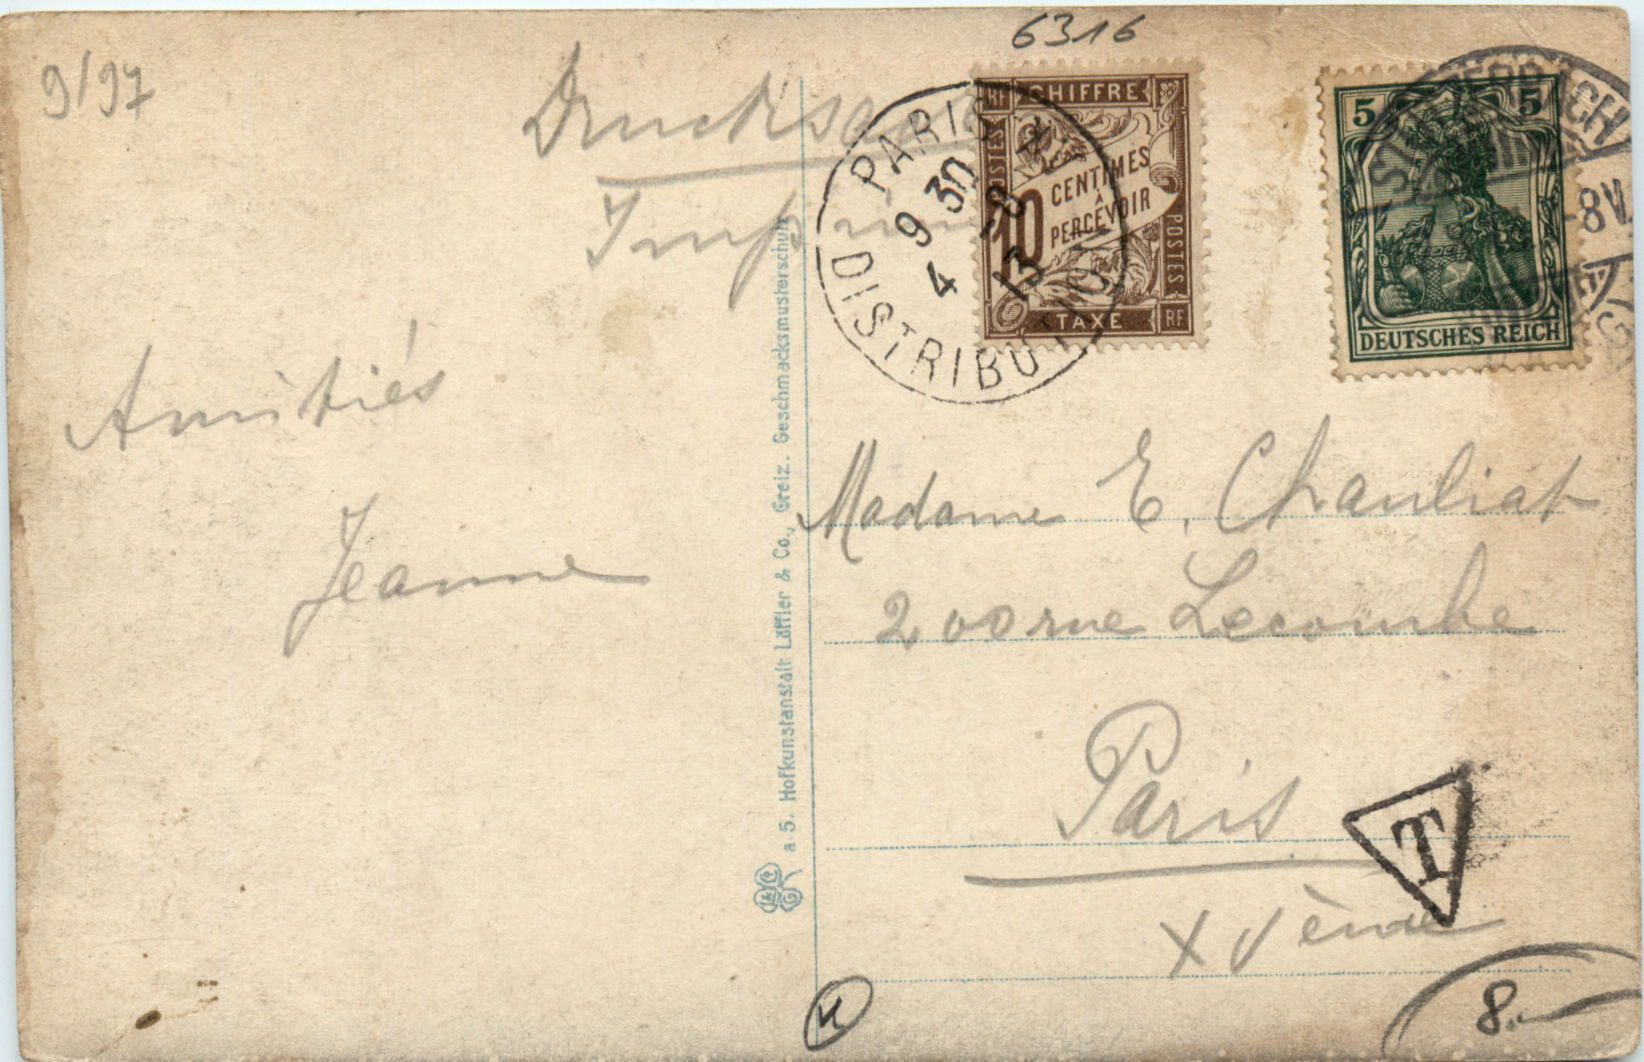 6316
9/97
Drucksache
Imprimé
CHIFFRE
RF
POSTES
10
CENTIMES
À
PERCEVOIR
POSTES
TAXE
RF
PARIS
9 30
4 -8
13
DISTRIBUTION
5 5
DEUTSCHES REICH
-8V.
Amitiés
Jeanne
Madame E. Chauliat
200 rue Lecombe
Paris
XVème
T
a 5. Hofkunstanstalt Löffler & Co., Greiz. Geschmacksmusterschutz
K
8.-